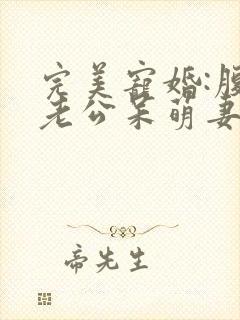 完美寵婚:腹
老公呆萌妻
帝先生